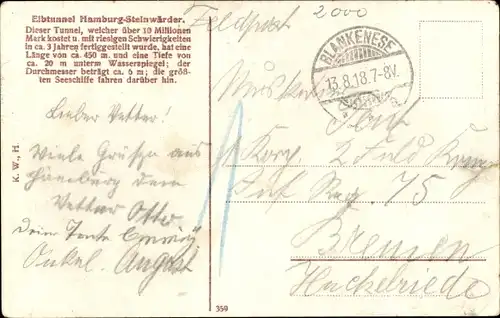 Elbtunnel Hamburg-Steinwärder.
Dieser Tunnel, welcher über 10 Millionen
Mark kostet u. mit riesigen Schwierigkeiten
in ca. 3 Jahren fertiggestellt wurde, hat eine
Länge von ca. 450 m und eine Tiefe von
ca. 20 m unterm Wasserspiegel; der
Durchmesser beträgt ca. 6 m; die größ-
ten Seeschiffe fahren darüber hin.
Feldpost
2000
BLANKENESE
13.8.18.7-8V.
Lieber Vetter!
Viele Grüße aus
Hamburg dein
Vetter Otto
Dein Tante
Onkel August
K. W., H.
Musketier
2
Reg. 75
Bremen
Huckelriede
359